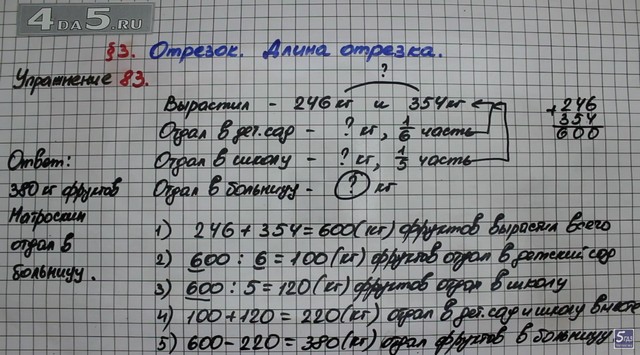 4DA5.RU
§3. Отрезок. Длина отрезка.
Упражнение 83.
?
Вырастил - 246 кг и 354 кг
Отдал в дет. сад - ? кг, 1/6 часть
Отдал в школу - ? кг, 1/5 часть
Отдал в больницу - ? кг
+ 246
354
600
Ответ:
380 кг фруктов
Матроскин
отдал в
больницу.
1) 246 + 354 = 600 (кг) фруктов вырастил всего
2) 600 : 6 = 100 (кг) фруктов отдал в детский сад
3) 600 : 5 = 120 (кг) фруктов отдал в школу
4) 100 + 120 = 220 (кг) отдал в дет. сад и школу вместе
5) 600 - 220 = 380 (кг) отдал фруктов в больницу.